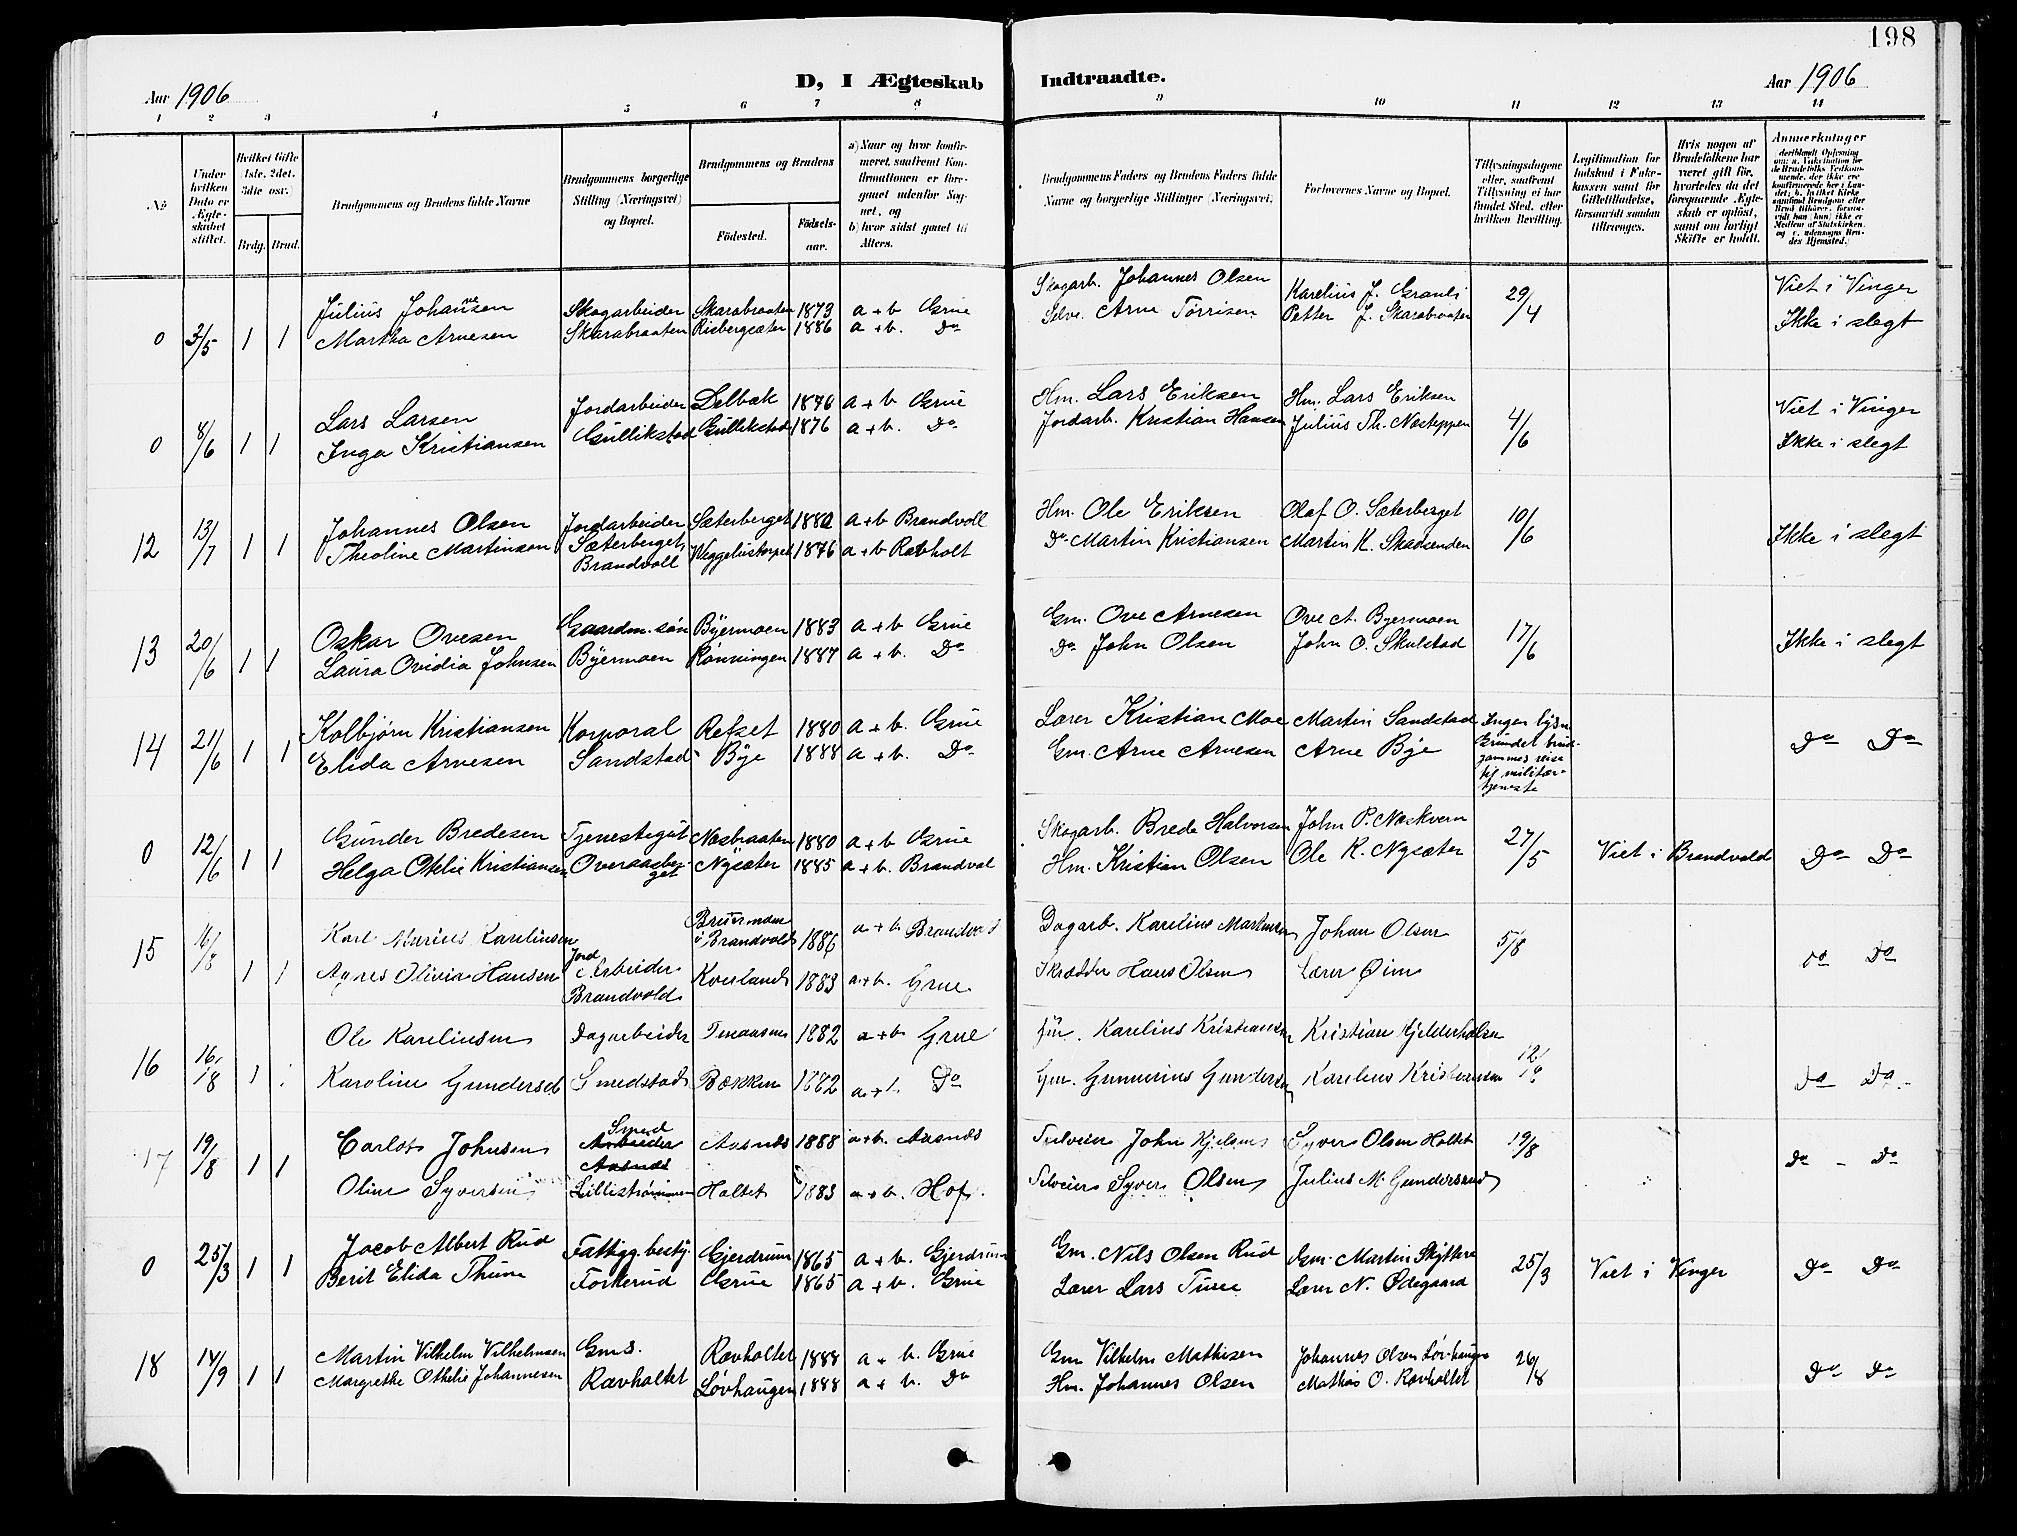 198
Aar 1906
D, I Ægteskab Indtraadte.
Aar 1906
1 2 3 4 5 6 7 8 9 10 11 12 13 14
No
Under hvilken Dato er Ægteskabet stiftet.
Hvilket Gifte (1ste, 2det, 3die osv.)
Brdg. Brud.
Brudgommens og Brudens fulde Navne
Brudgommens borgerlige Stilling (Næringsvei) og Bopæl.
Brudgommens og Brudens
Fødested. Fødselsaar.
a) Naar og hvor konfirmeret, saafremt Konfirmationen er foregaaet udenfor Sognet, og
b) hvor sidst gaaet til Alters.
Brudgommens Faders og Brudens Faders fulde Navne og borgerlige Stillinger (Næringsvei).
Forlovernes Navne og Bopæl.
Tillysningsdagene eller, saafremt Tillysning ei har fundet Sted, efter hvilken Bevilling.
Legitimation for Indskud i Enkekassen samt for Giftetilladelse, forsaavidt saadan tiltrænges.
Hvis nogen af Brudefolkene har været gift før, hvorledes da det foregaaende Ægteskab er opløst, samt om lovligt Skifte er holdt.
Anmerkninger
0 2/5 1 1 Julius Johansen Skogarbeider Skarabraaten 1873 a + b Grue Skogarb. Johannes Olsen Karelius J. Granli 29/4 Viet i Vinger
Martha Arnesen Skarabraaten Risbergsæter 1886 a + b. Do Selve. Arne Tørrisen Petter J. Skarabraaten Ikke i slegt
0 8/6 1 1 Lars Larsen Jordarbeider Delbæk 1876 a + b Grue Hm. Lars Eriksen Hm. Lars Eriksen 4/6 Viet i Vinger
Inga Kristiansen Gullikstad Gullikstad 1876 a + b. Do Jordarb. Kristian Hansen Julius Th. Næsteppen Ikke i slegt
12 13/7 1 1 Johannes Olsen Jordarbeider Sæterberget 1882 a + b Brandvoll Hm. Ole Eriksen Olaf O. Sæterberget 10/6 Ikke i slegt
Theoline Martinsen Sæterberget, Weggelistorpet 1876 a + b Ravholt Do Martin Kristiansen Martin K. Skadsenden
Brandvoll
13 20/6 1 1 Oskar Ovesen Gaardm. søn Byermoen 1883 a + b Grue Gm. Ove Arnesen Ove A. Byermoen 17/6 Ikke i slegt
Laura Ovidia Johnsen Byermoen Rønningen 1887 a + b. Do Do John Olsen John O. Skulstad
14 21/6 1 1 Kolbjørn Kristiansen Korporal Refset 1880 a + b. Grue Lærer Kristian Moe Martin Sandstad Ingen lysn. Do Do
Elida Arnesen Sandstad Bye 1888 a + b. Do Gm. Arne Arnesen Arne Bye Grundet brudgommes reise til militærtjeneste
0 12/6 1 1 Gunder Bredesen Tjenestegut Næsbraaten 1880 a + b Grue Skogarb. Brede Halvorsen John P. Næskvern 27/5 Viet i Brandvold Do Do
Helga Otelie Kristiansen Overaasberget Nysæter 1885 a + b. Brandvol Hm. Kristian Olsen Ole K. Nysæter
15 1 1 Karl Marius Karelinsen i Brandvold 1886 a + b. Brandvold Dagarb. Karelius Martinsen Johan Olsen 5/8 Do Do
Agnes Olivia Hansen Jord Arbeider Kveiland 1883 a + b. Grue Skrædder Hans Olsen Lærer Øim
Brandvold
16 16/8 1 1 Ole Karelinsen Dagarbeider 1882 a + b Grue Karelius Kristiansen Kristian Kjelderholen 12/ Do Do
Karoline Gundersd. Smedstad Bækken 1882 a + b. Do Gm. Gunnerius Gundersen Karelius Kristiansen
17 19/8 1 1 Carlot Johnsen Smed Arbeider Aasnæs 1888 a + b. Aasnæs Selveier John Kjelsen Syver Olsen Holtet 19/8 Do - Do
Aasnæs
Oline Syversen Lillestrømmen Holtet 1883 a + b. Hof. Selveier Syver Olsen Julius M. Gundersrud
0 25/3 1 1 Jacob Albert Rud Fattigg. besty. Gjerdrum 1865 a + b. Gjerdrum Gm. Nils Olsen Rud Gm. Martin Skyttere 25/3 Viet i Vinger Do Do
Berit Elida Thune Forkerud Grue 1865 a + b. Grue Lærer Lars Tune Lærer N. Ødegaard
18 14/9 1 1 Martin Vilhelm Vilhelmsen Gms. Ravholtet 1888 a + b. Grue Gm Vilhelm Mathisen Johannes Olsen Løvhaugen 26/8 Do Do
Margrethe Othelie Johannesen Ravholtet Løvhaugen 1888 a + b. Do Hm. Johannes Olsen Mathias O. Ravholtet